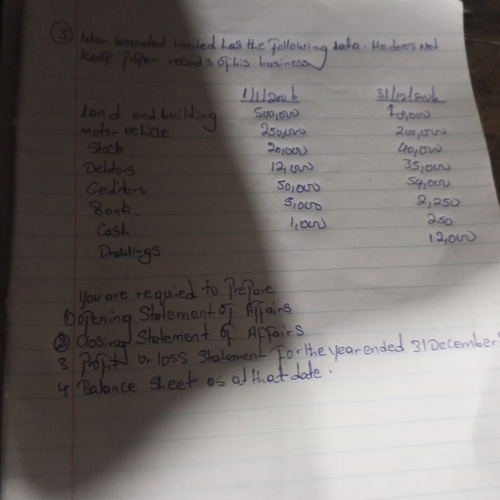 ③ wounded Limited has the following data. He does not
keep proper records of his business
1/1/2006 31/12/2006
Land and building 500,000 700,000
motor vehicle 250,000 200,000
Stock 20,000 40,000
Debtors 12,000 35,000
Ceditors 50,000 54,000
Bank. 5,000 2,250
Cash 1,000 250
Drawings 12,000
You are required to prepare
① opening Statement of Affairs
② Closing Statement of Affairs
3 Profit or loss Statement for the year ended 31 December
4 Balance Sheet as at that date.